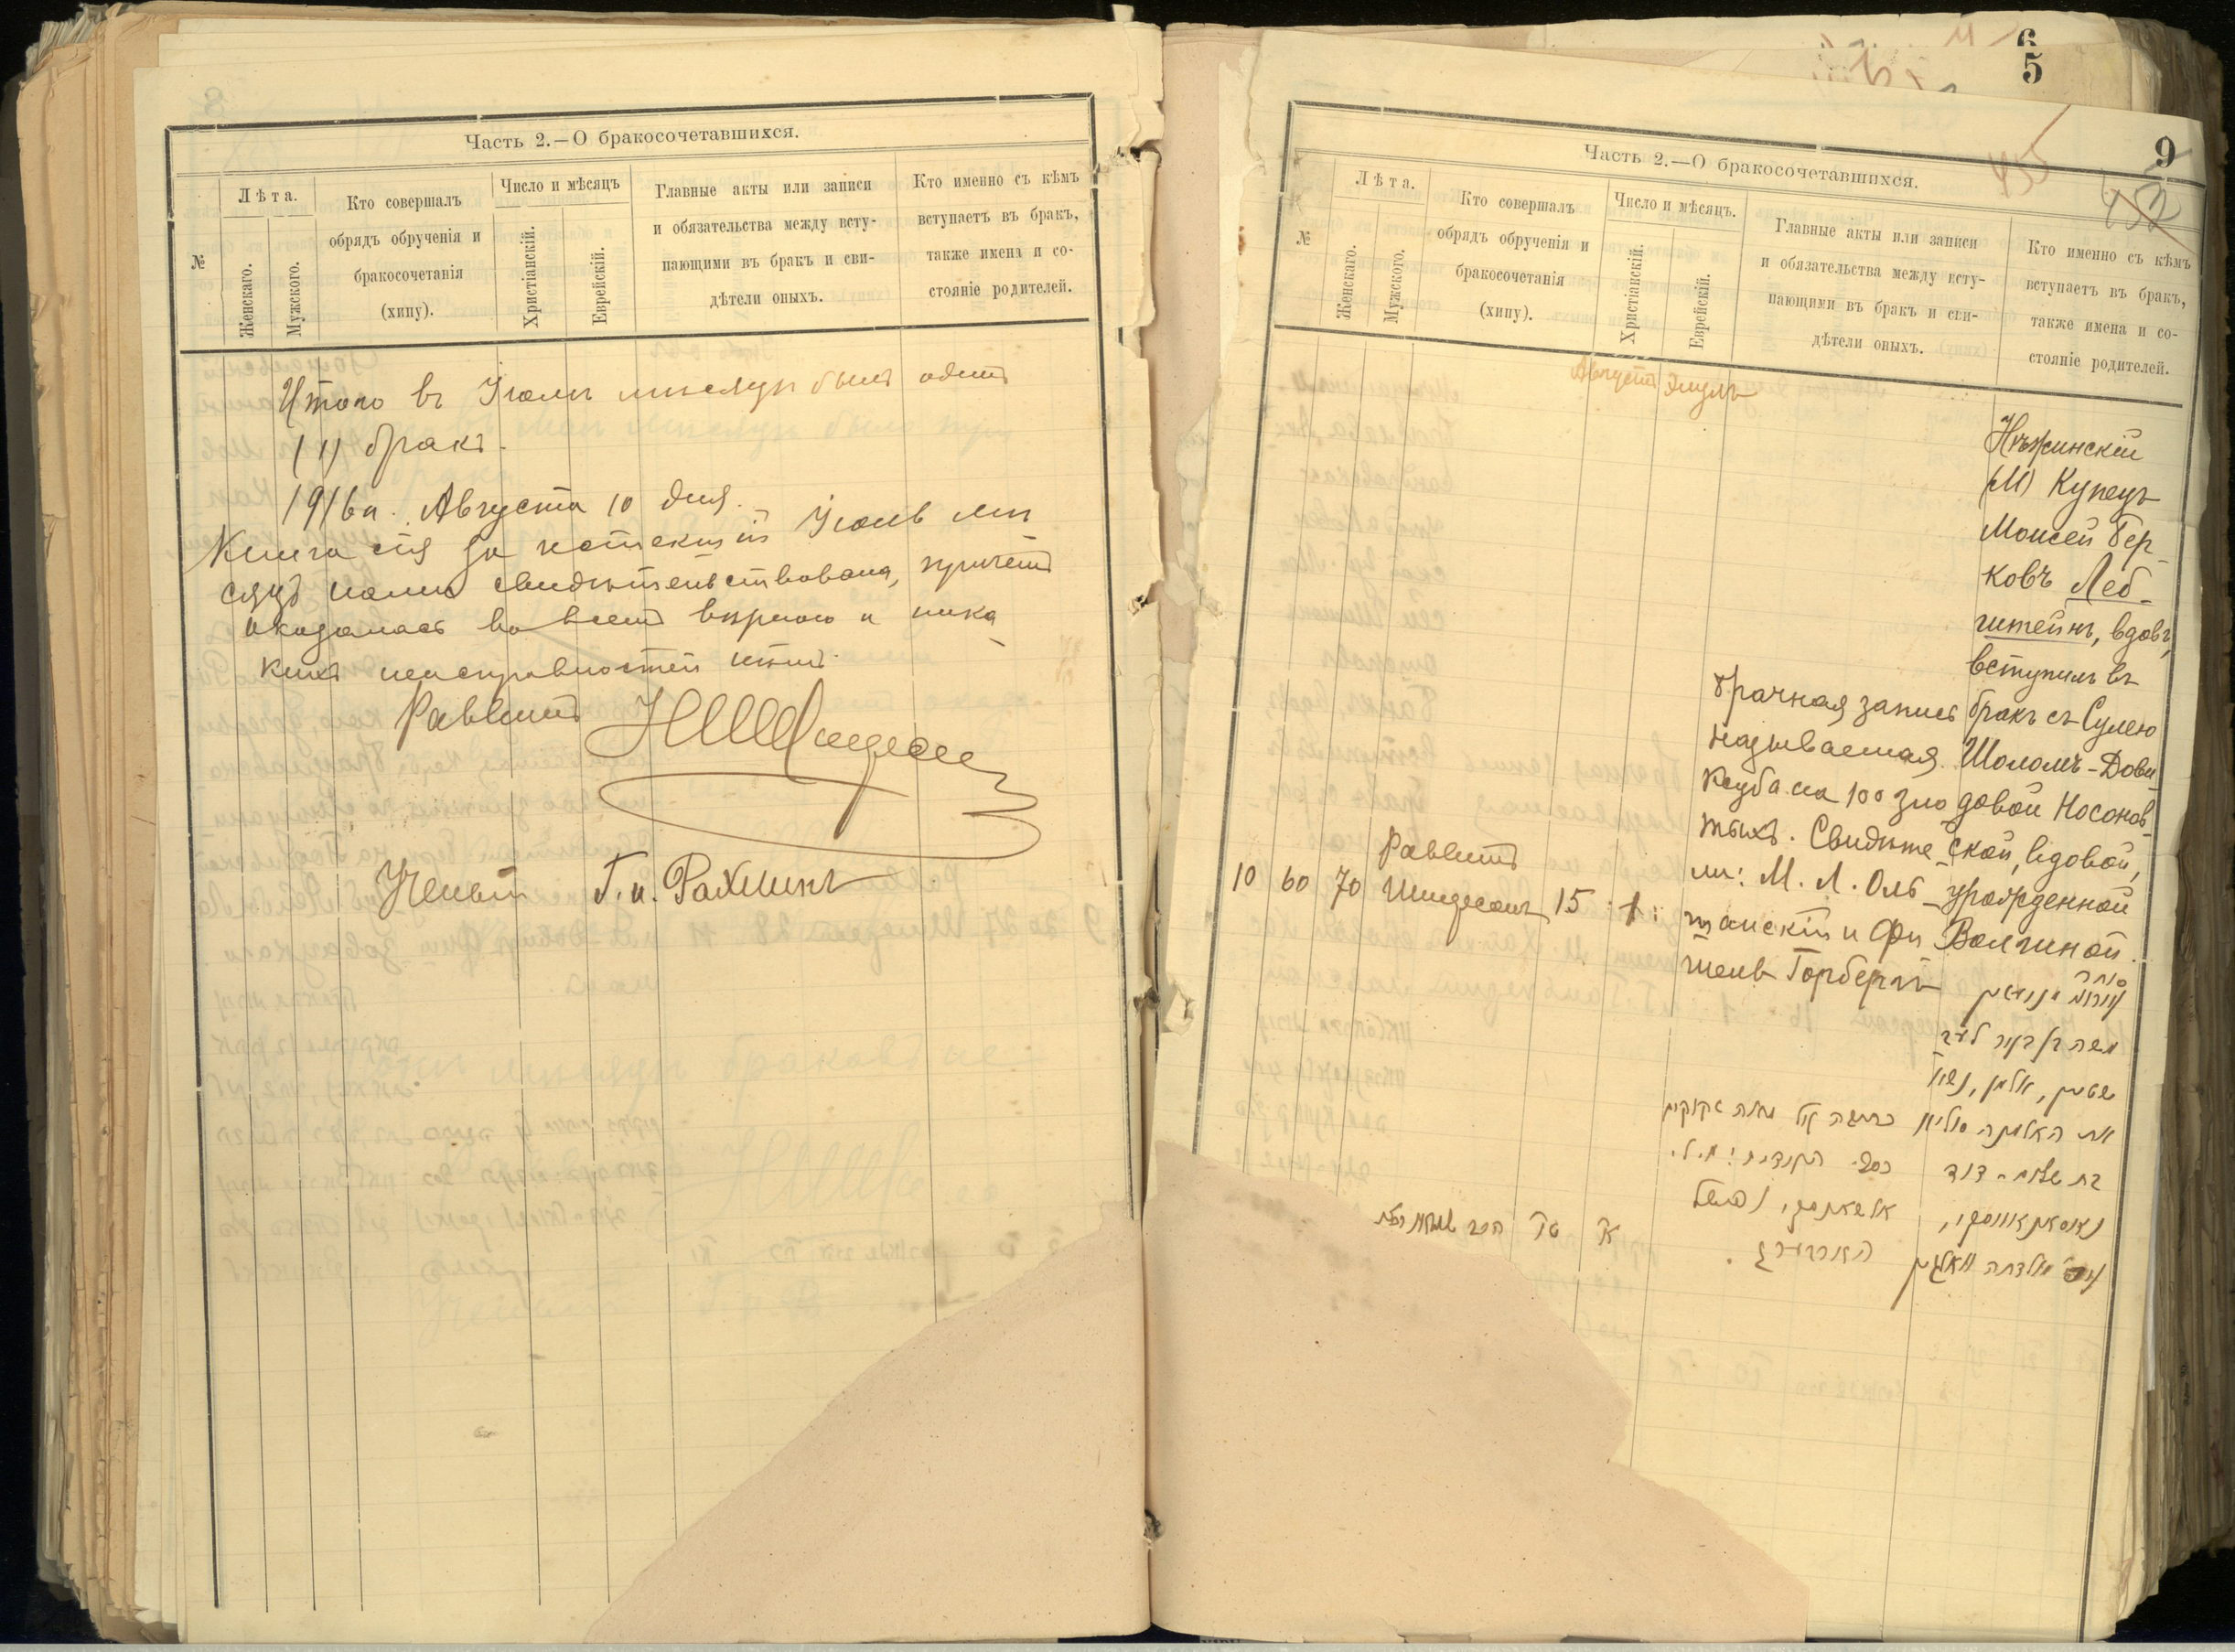 Часть 2.—О бракосочетавшихся.
№
Лѣта.
Женскаго.
Мужскаго.
Кто совершалъ
обрядъ обрученія и
бракосочетанія
(хипу).
Число и мѣсяцъ
Христіанскій.
Еврейскій.
Главные акты или записи
и обязательства между всту-
пающими въ бракъ и сви-
дѣтели оныхъ.
Кто именно съ кѣмъ
вступаетъ въ бракъ,
также имена и со-
стояніе родителей.
Итого въ Іюлѣ мѣсяцѣ былъ одинъ
(1) бракъ.
1916 г. Августа 10 дня.
Книга сія за истекшій Іюль мѣ
сяцъ нами свидѣтельствована, причемъ
оказалась во всемъ вѣрною и ника
кихъ неисправностей нѣтъ.
Раввинъ
Ученый Г. и. Рахлинъ
6
5
9
455
452
Часть 2.—О бракосочетавшихся.
№
Лѣта.
Женскаго.
Мужского.
Кто совершалъ
обрядъ обрученія и
бракосочетанія
(хипу).
Число и мѣсяцъ.
Христіанскій.
Еврейскій.
Главные акты или записи
и обязательства между всту-
пающими въ бракъ и сви-
дѣтели оныхъ.
Кто именно съ кѣмъ
вступаетъ въ бракъ,
также имена и со-
стояніе родителей.
Августъ Элулъ
10 60 70
Раввинъ
Шидесонъ
15 1
Брачная запись
называемая
Ксуба на 100 зло
тыхъ. Свидѣте_
ли: М. Л. Оль_
шанскій и Фи
шель Горбергъ
Нѣжинскій
(М) Купецъ
Моисей Бер_
ковъ Леб_
штейнъ, вдовъ,
вступилъ въ
бракъ съ Сулею
Шоломъ-Дови
довой Носонов_
ской, вдовой,
урожденной
Волгиной.
סוחר
משה בן בער לעב
שטיין, אלמן, נשא
את האלמנה סוליא
בת שלום-דוד
כתובה על מאה זהובים
כסף. העדים: מ. ל.
אלשאנסקי, ופישל
הארבערג.